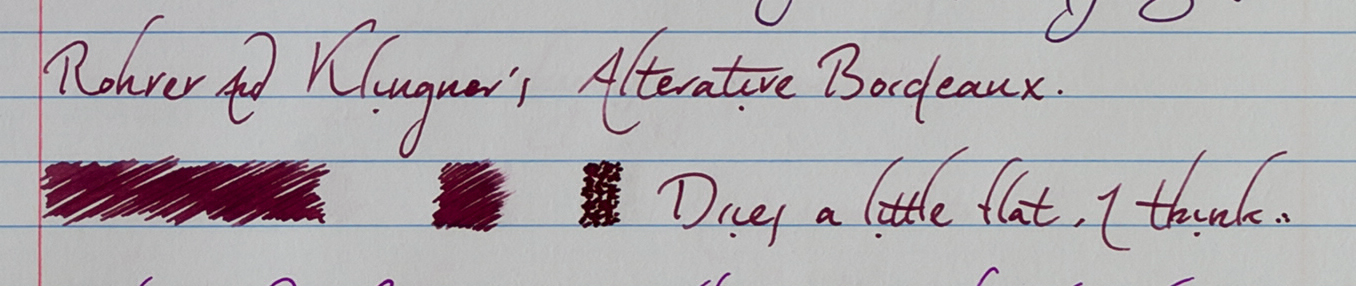 Rohrer and Klingner's Alterative Bordeaux.
Dries a little flat, I think..